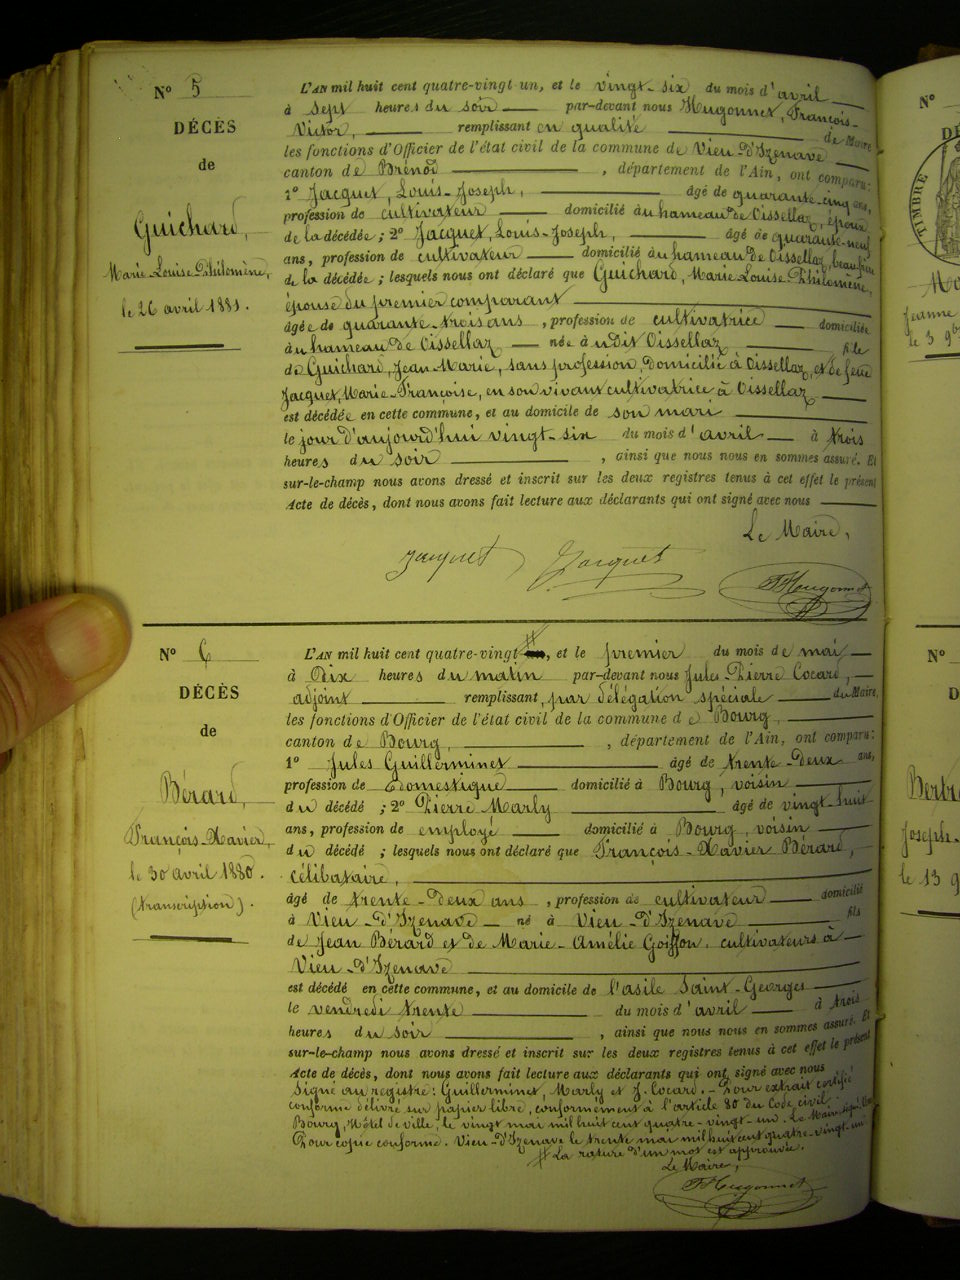 N° 5
DÉCÈS
de
Guichard,
Marie Louise Philomène,
le 26 avril 1881.
L'AN mil huit cent quatre-vingt un, et le vingt-six du mois d'avril
à sept heures du soir par-devant nous Hugonnet, François-
Victor, remplissant en qualité de Maire
les fonctions d'Officier de l'état civil de la commune de Vieu-d'Izenave
canton de Brénod, département de l'Ain, ont comparu:
1° Jacquet, Louis-Joseph, âgé de quarante-cinq ans,
profession de cultivateur domicilié au hameau de Oissellaz, époux
de la décédée; 2° Jacquet, Louis-Joseph, âgé de quarante-neuf
ans, profession de cultivateur domicilié au hameau de Oissellaz, beau frère
de la décédée; lesquels nous ont déclaré que Guichard, Marie Louise Philomène,
épouse du premier comparant
âgée de quarante-trois ans, profession de cultivatrice domiciliée
au hameau de Oissellaz née à udit Oissellaz fille
de Guichard, Jean Marie, sans profession, domicilié à Oissellaz, et de feue
Jacquet, Marie-Françoise, en son vivant cultivatrice à Oissellaz
est décédée en cette commune, et au domicile de son mari
le jour d'aujourd'hui vingt-six du mois d'avril à trois
heures du soir, ainsi que nous nous en sommes assuré. Et
sur-le-champ nous avons dressé et inscrit sur les deux registres tenus à cet effet le présent
Acte de décès, dont nous avons fait lecture aux déclarants qui ont signé avec nous
Le Maire,
Jacquet Jacquet FHugonnet
N° 6
DÉCÈS
de
Bérard,
François-Xavier,
le 30 avril 1880.
(transcription).
L'AN mil huit cent quatre-vingt, et le premier du mois de mai
à dix heures du matin par-devant nous Jules Pierre Cocard,
adjoint remplissant, par délégation spéciale du Maire,
les fonctions d'Officier de l'état civil de la commune de Bourg,
canton de Bourg, département de l'Ain, ont comparu:
1° Jules Guillerminet âgé de trente-deux ans,
profession de domestique domicilié à Bourg, voisin
du décédé; 2° Pierre Marly âgé de vingt-huit
ans, profession de employé domicilié à Bourg, voisin
du décédé; lesquels nous ont déclaré que François-Xavier Bérard,
célibataire,
âgé de trente-deux ans, profession de cultivateur domicilié
à Vieu-d'Izenave né à Vieu-d'Izenave fils
de Jean Bérard et de Marie-Amélie Goiffon, cultivateurs à
Vieu-d'Izenave
est décédé en cette commune, et au domicile de l'asile Saint-Georges
le vendredi trente du mois d'avril à trois
heures du soir, ainsi que nous nous en sommes assuré. Et
sur-le-champ nous avons dressé et inscrit sur les deux registres tenus à cet effet le présent
Acte de décès, dont nous avons fait lecture aux déclarants qui ont signé avec nous
Signé au registre: Guillerminet, Marly et J. Cocard. - Pour extrait certifié
conforme délivré sur papier libre, conformément à l'article 80 du Code civil.
Bourg, Hôtel de Ville, le vingt mai mil huit cent quatre-vingt-un. Le Maire signé
Pour copie conforme. Vieu-d'Izenave le trente mai mil huit cent quatre-vingt-un
# La rature d'un mot est approuvée.
Le Maire,
FHugonnet
N°
TIMBRE
Jeanne
le 3 9b
N°
D
Bertr
Joseph-
le 13 9